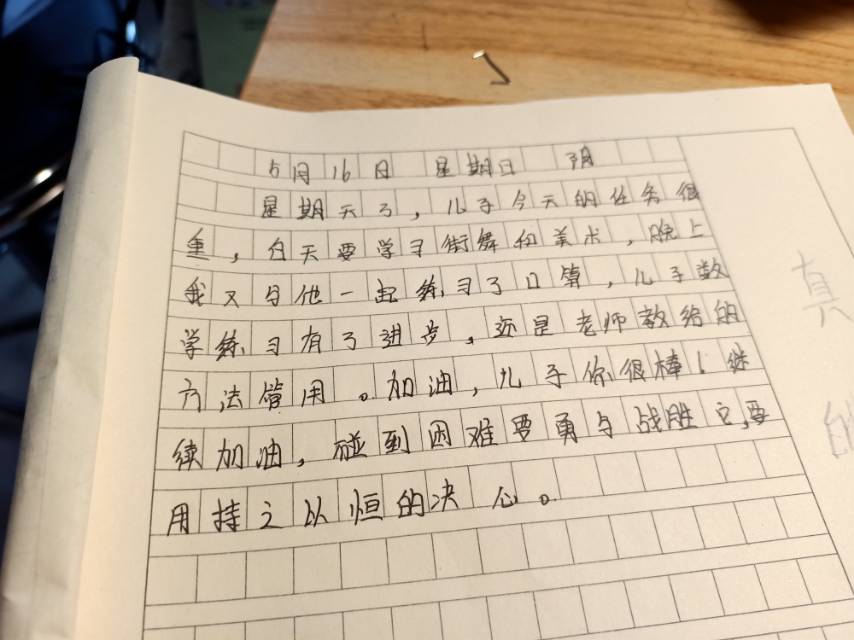 5月16日 星期日 阴
星期天了，儿子今天的任务很
重，白天要学习街舞和美术，晚上
我又与他一起练习了口算，儿子数
学练习有了进步，还是老师教给的
方法管用。加油，儿子你很棒！继
续加油，碰到困难要勇与战胜它，要
用持之以恒的决心。
真
的